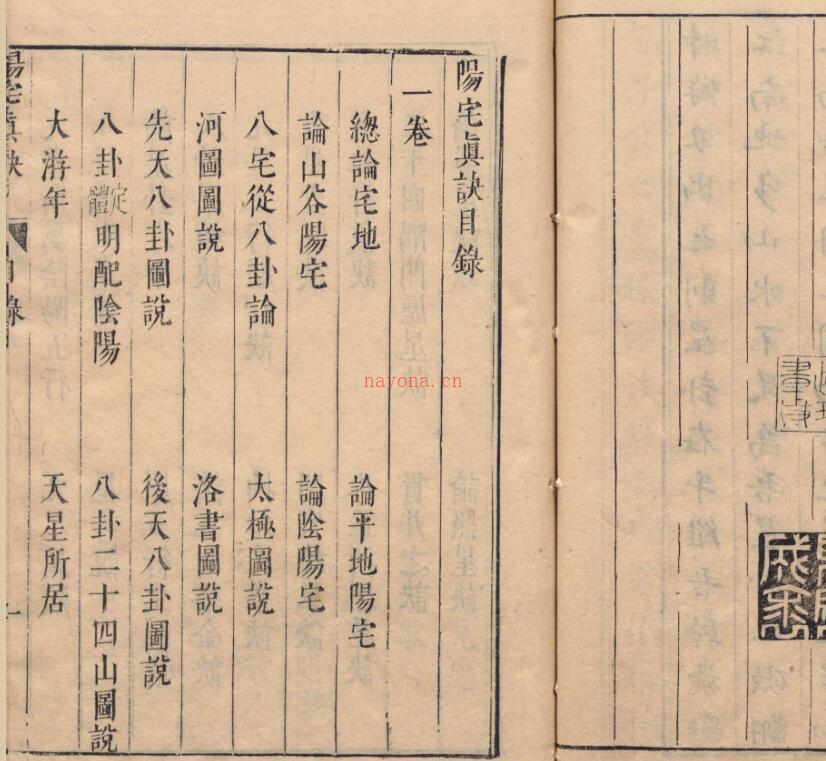 陽宅眞訣目錄
一卷
總論宅地 論平地陽宅
論山谷陽宅 論陰陽宅
八宅從八卦論 太極圖說
河圖圖說 洛書圖說
先天八卦圖說 後天八卦圖說
八卦定體明配陰陽 八卦二十四山圖說
大游年 天星所居
陽宅眞訣 目錄 一
nayona.cn